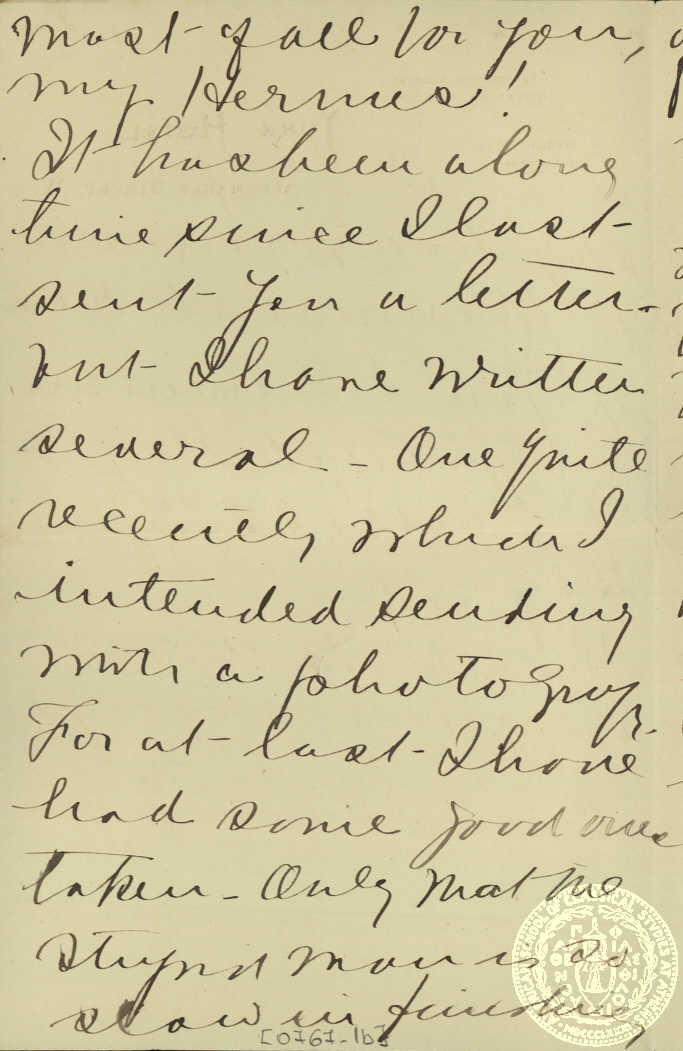 most of all for you,
my Hermes!
It has been a long
time since I last
sent you a letter.
but I have written
several - One quite
recently which I
intended sending
with a photograph.
For at last I have
had some good ones
taken - Only that the
stupid man is so
slow in finishing
[0767-1b]